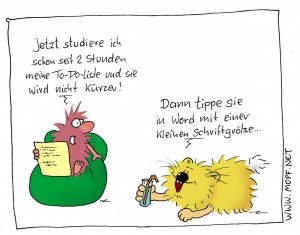 Jetzt studiere ich
schon seit 2 Stunden
meine To-Do-Liste und sie
wird nicht kürzer!
Dann tippe sie
in Word mit einer
kleinen Schriftgröße...
WWW.MOPF.NET